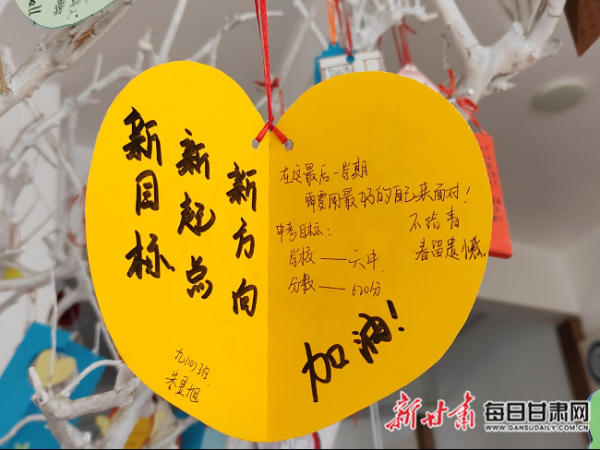 新目标
新起点
新方向
九(10)班
在这最后一学期
需要用最好的自己来面对!
不给青
春留遗憾。
中考目标:
学校——天中
分数——620分
加油!
新甘肃
每日甘肃网
WWW.GANSUDAILY.COM.CN